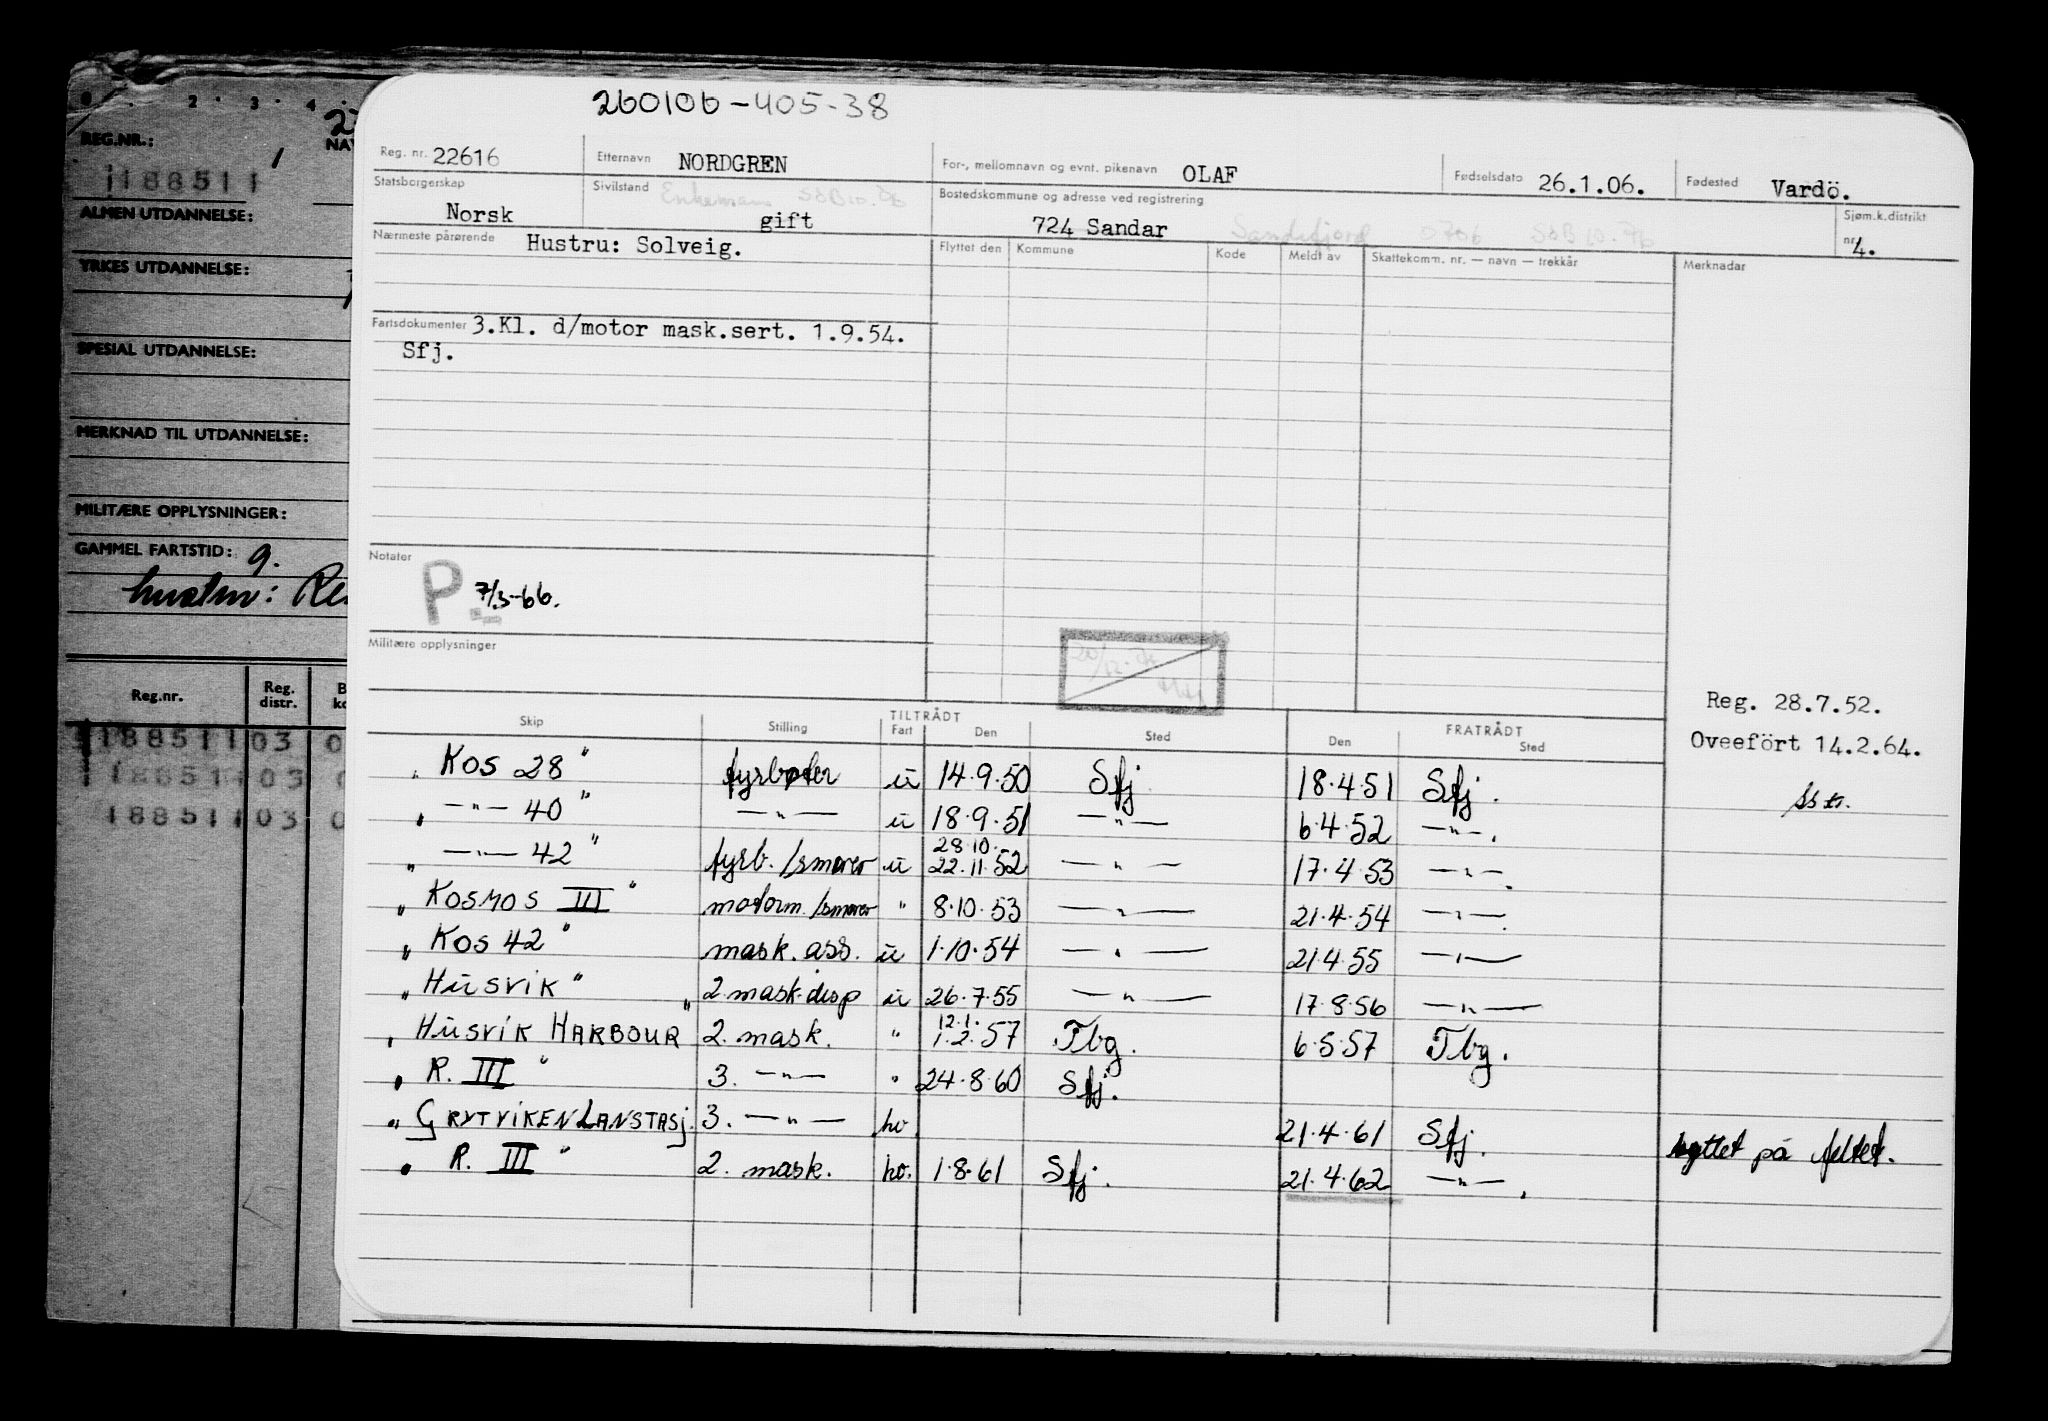 260106-405-38
Reg. nr. 22616 Etternavn NORDGREN For-, mellomnavn og evnt. pikenavn OLAF Fødselsdato 26.1.06. Fødested Vardö.
Statsborgerskap Norsk Sivilstand Enkemann SSB 10. gift Bostedskommune og adresse ved registrering 724 Sandar Sandefjord 0706 SSB 10. Sjøm.k.distrikt nr. 4.
Nærmeste pårørende Hustru: Solveig. Flyttet den Kommune Kode Meldt av Skattekomm. nr. — navn — trekkår Merknadar
Fartsdokumenter 3.Kl. d/motor mask.sert. 1.9.54.
Sfj.
Notater
P. 7/3-66.
Militære opplysninger
20/12.
Reg. 28.7.52.
Oveefört 14.2.64.
TILTRÅDT FRATRÅDT
Skip Stilling Fart Den Sted Den Sted
" Kos 28 " fyrbøter u 14.9.50 Sfj. 18.4.51 Sfj.
" —"— 40 " —"— u 18.9.51 —"— 6.4.52 —"—.
28.10.
" —"— 42 " fyrb./smører u 22.11.52 —"— 17.4.53 —"—.
" KOSMOS III " motorm./smører " 8.10.53 —"— 21.4.54 —"—.
" Kos 42 " mask. ass. u 1.10.54 —"— 21.4.55 —"—
" HUSVIK " 2. mask. disp u 26.7.55 —"— 17.8.56 —"—
12.1.
" HUSVIK HARBOUR " 2. mask. " 1.2.57 Tbg. 6.5.57 Tbg.
" R. III " 3. —"— " 24.8.60 Sfj.
" GRYTVIKEN LANSTASJ. 3. —"— ho 21.4.61 Sfj. byttet på feltet.
" R. III " 2. mask. ho. 1.8.61 Sfj. 21.4.62 —"—.
0 . 2 . 3 . 4 .
REG.NR.: 1 NAV
1188511
ALMEN UTDANNELSE:
YRKES UTDANNELSE:
SPESIAL UTDANNELSE:
MERKNAD TIL UTDANNELSE:
MILITÆRE OPPLYSNINGER:
GAMMEL FARTSTID: 9.
hustru:
Reg.nr. Reg. distr.
1188511 03 0
1188511 03 0
1188511 03 0